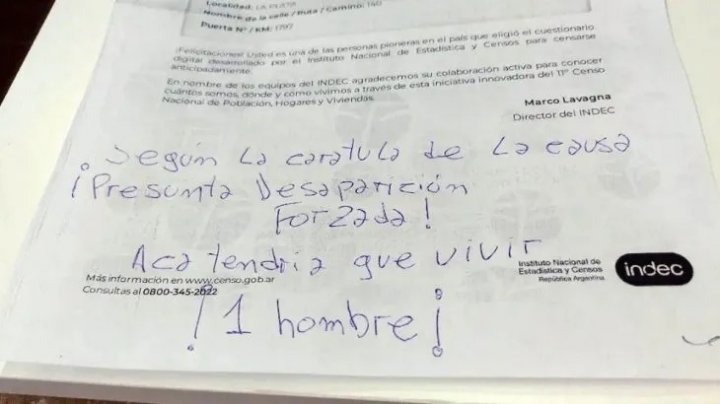 Localidad: LA PLATA
Nombre de la calle / Ruta / Camino: 140
Puerta N° / KM: 1797
¡Felicitaciones! Usted es una de las personas pioneras en el país que eligió el cuestionario
digital desarrollado por el Instituto Nacional de Estadística y Censos para censarse
anticipadamente.
En nombre de los equipos del INDEC agradecemos su colaboración activa para conocer
cuántos somos, dónde y cómo vivimos a través de esta iniciativa innovadora del 11° Censo
Nacional de Población, Hogares y Viviendas.
Marco Lavagna
Director del INDEC
¡Según La caratula de La causa
¡Presunta Desaparición
Forzada!
Aca tendria que vivir
¡1 hombre¡
Más información en www.censo.gob.ar
Consultas al 0800-345-2022
Instituto Nacional de
Estadística y Censos
República Argentina
indec